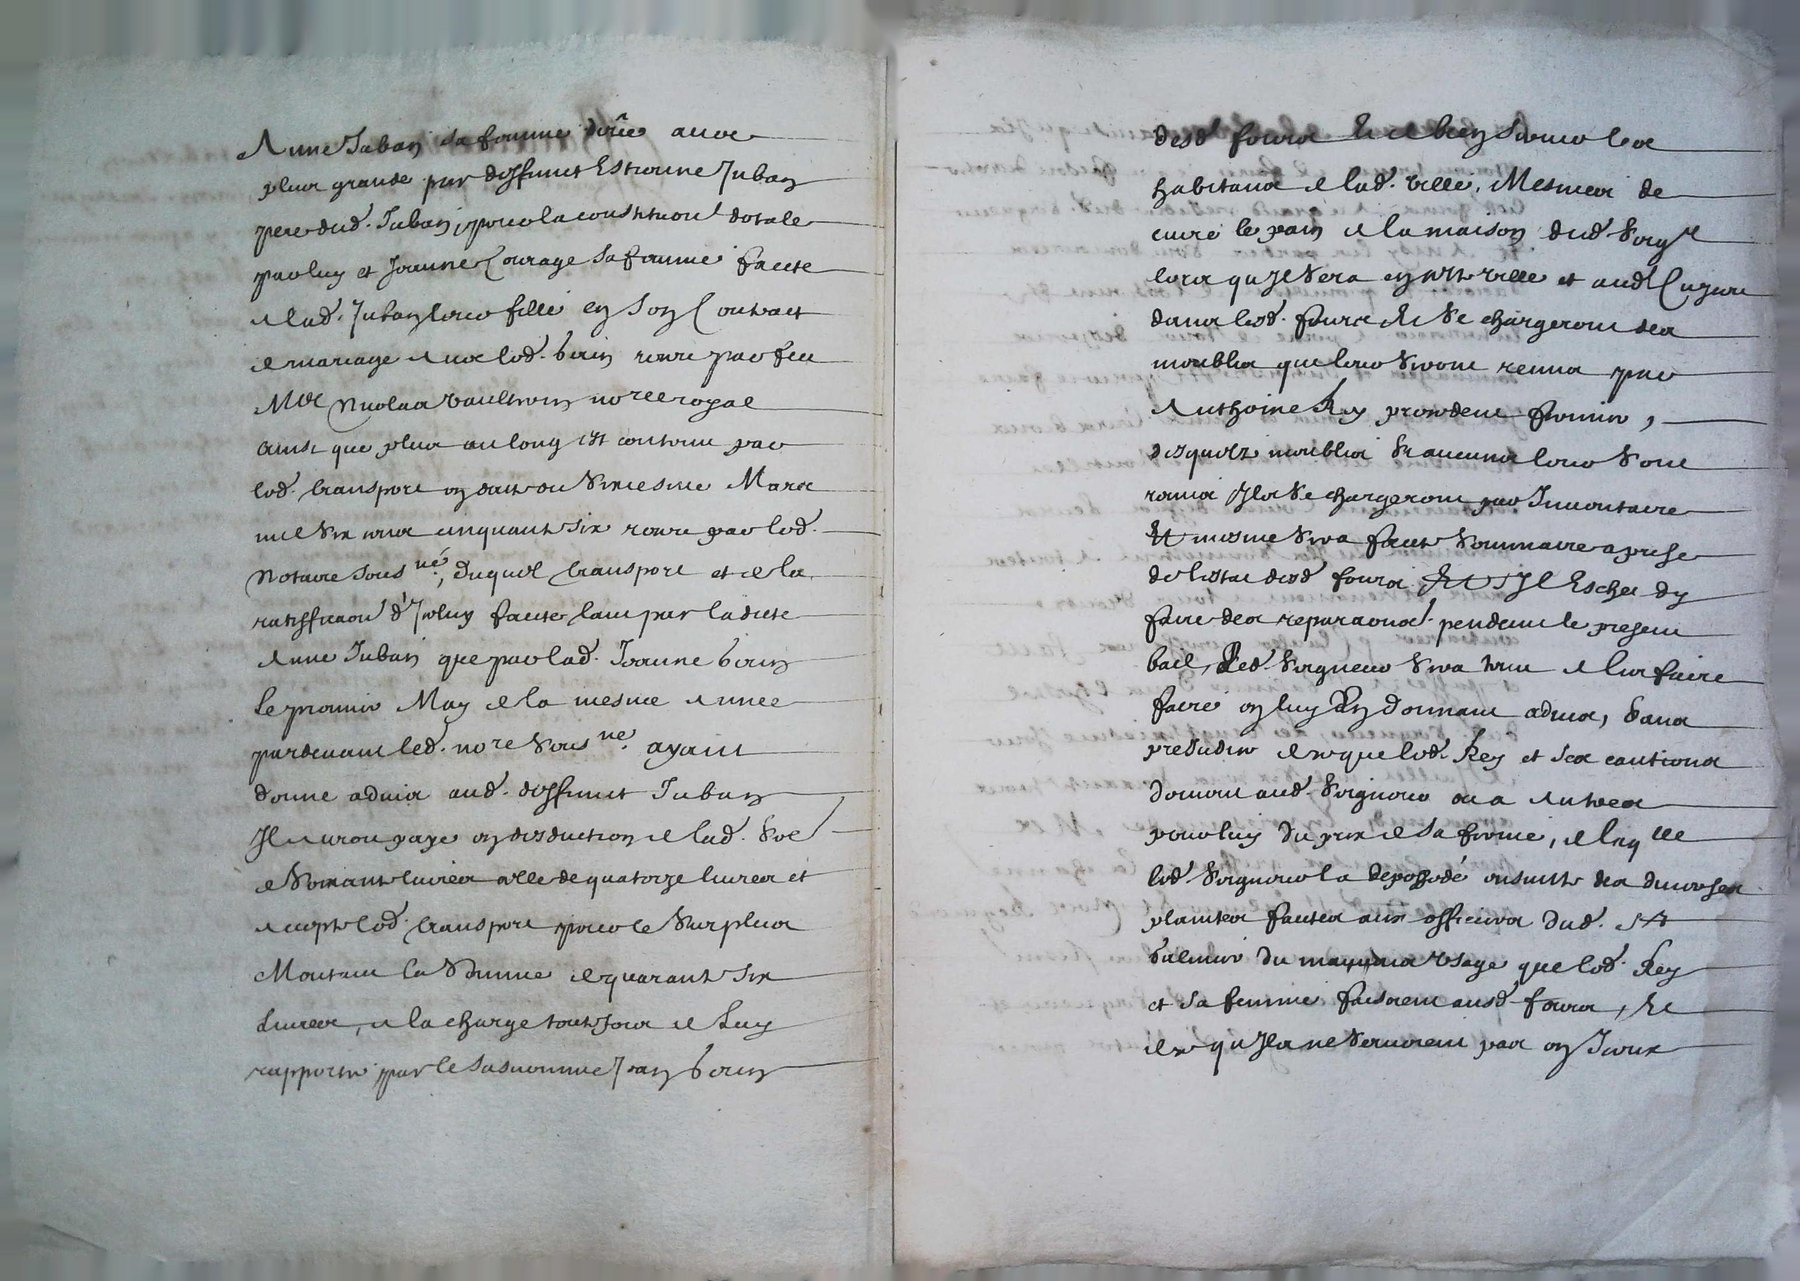 Anne Juban sa femme deüe avec
plus grande par deffunct Estienne Juban
pere dud. Juban, pour la constitution dotale
par luy et Jeanne Courage sa femme faicte
a lad. Juban leur fille en son Contract
de mariage avec led. borin receu par feu
Me Nicolas notre royal
ainsi que plus au long est contenu par
led. transport en datte du Sixiesme Mars
mil Six cens cinquante six receu par led.
Notaire sousné, duquel transport et de la
ratiffication d'Iceluy faicte tant par ladicte
Anne Juban que par lad. Jeanne borin
le premier May de la mesme Annee
pardevant led. nore Sousné. ayant
donne advis aud. deffunct Juban
Il auroit paye en desduction de lad. Soe
de Soixante livres celle de quatorze livres et
accepte led. transport pour le Surplus
Montant la Somme de quarante six
livres, a la charge toutesfois de luy
rapporter par le susnomme Jean borin
desd. fours Et de bien Servir les
habitans de lad. ville, Mesmes de
cuire le pain de la maison dud. Seigr
lors qu'Il Sera en cette ville et aud.
dans lesd. fours Et Se chargeront des
moubles que leur Seront remis par
Anthoine Rey precedent fermier,
desquelz moubles Si aucuns leur Sont
remis Ils Se chargeront par Inventaire
Et mesme Sera faict Sommaire aprise
de lestat desd. fours Et S'Il Eschet d'y
faire des reparaons. pendant le present
bail, Led. Seigneur Sera tenu de les faire
faire en luy En donnant advis, Sans
preiudice de ce que led. Rey et Ses cautions
doivent aud. Seigneur ou a Autres
pour luy du prix de Sa ferme, de laqlle
led. Seigneur la depossedé ensuitte des diverses
plaintes faictes aux officiers dud. St
du mauvais Usage que led. Rey
et Sa femme faisoient ausd. fours, Et
de ce qu'Ils ne Servoient pas en Iceux